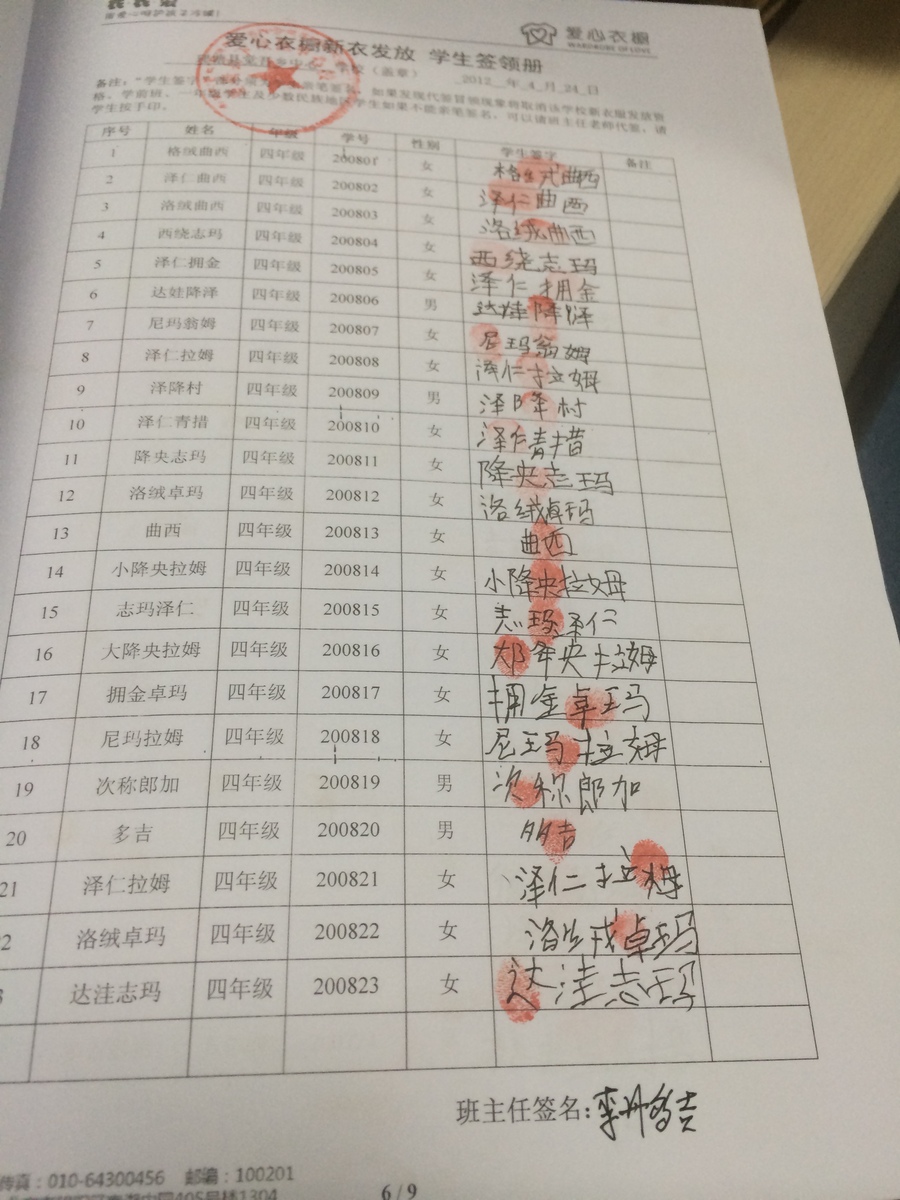 爱心衣橱
WARDROBE OF LOVE
爱心衣橱新衣发放 学生签领册
学校（盖章） 2012 年 4 月 24 日
备注：“学生签字”如果发现代签冒领现象将取消该学校新衣服发放资
格。学前班、一年级学生及少数民族地区学生如果不能亲笔签名，可以请班主任老师代签，请
学生按手印。
序号 姓名 年级 学号 性别 学生签字 备注
1 格绒曲西 四年级 200801 女 格绒曲西
2 泽仁曲西 四年级 200802 女 泽仁曲西
3 洛绒曲西 四年级 200803 女 洛绒曲西
4 西绕志玛 四年级 200804 女 西绕志玛
5 泽仁拥金 四年级 200805 女 泽仁拥金
6 达娃降泽 四年级 200806 男 达娃降泽
7 尼玛翁姆 四年级 200807 女 尼玛翁姆
8 泽仁拉姆 四年级 200808 女 泽仁拉姆
9 泽降村 四年级 200809 男 泽降村
10 泽仁青措 四年级 200810 女 泽仁青措
11 降央志玛 四年级 200811 女 降央志玛
12 洛绒卓玛 四年级 200812 女 洛绒卓玛
13 曲西 四年级 200813 女 曲西
14 小降央拉姆 四年级 200814 女 小降央拉姆
15 志玛泽仁 四年级 200815 女 志玛泽仁
16 大降央拉姆 四年级 200816 女 大降央拉姆
17 拥金卓玛 四年级 200817 女 拥金卓玛
18 尼玛拉姆 四年级 200818 女 尼玛拉姆
19 次称郎加 四年级 200819 男 次称郎加
20 多吉 四年级 200820 男 多吉
21 泽仁拉姆 四年级 200821 女 泽仁拉姆
2 洛绒卓玛 四年级 200822 女 洛绒卓玛
3 达洼志玛 四年级 200823 女 达洼志玛
班主任签名：李丹多吉
传真：010-64300456 邮编：100201
6 / 9